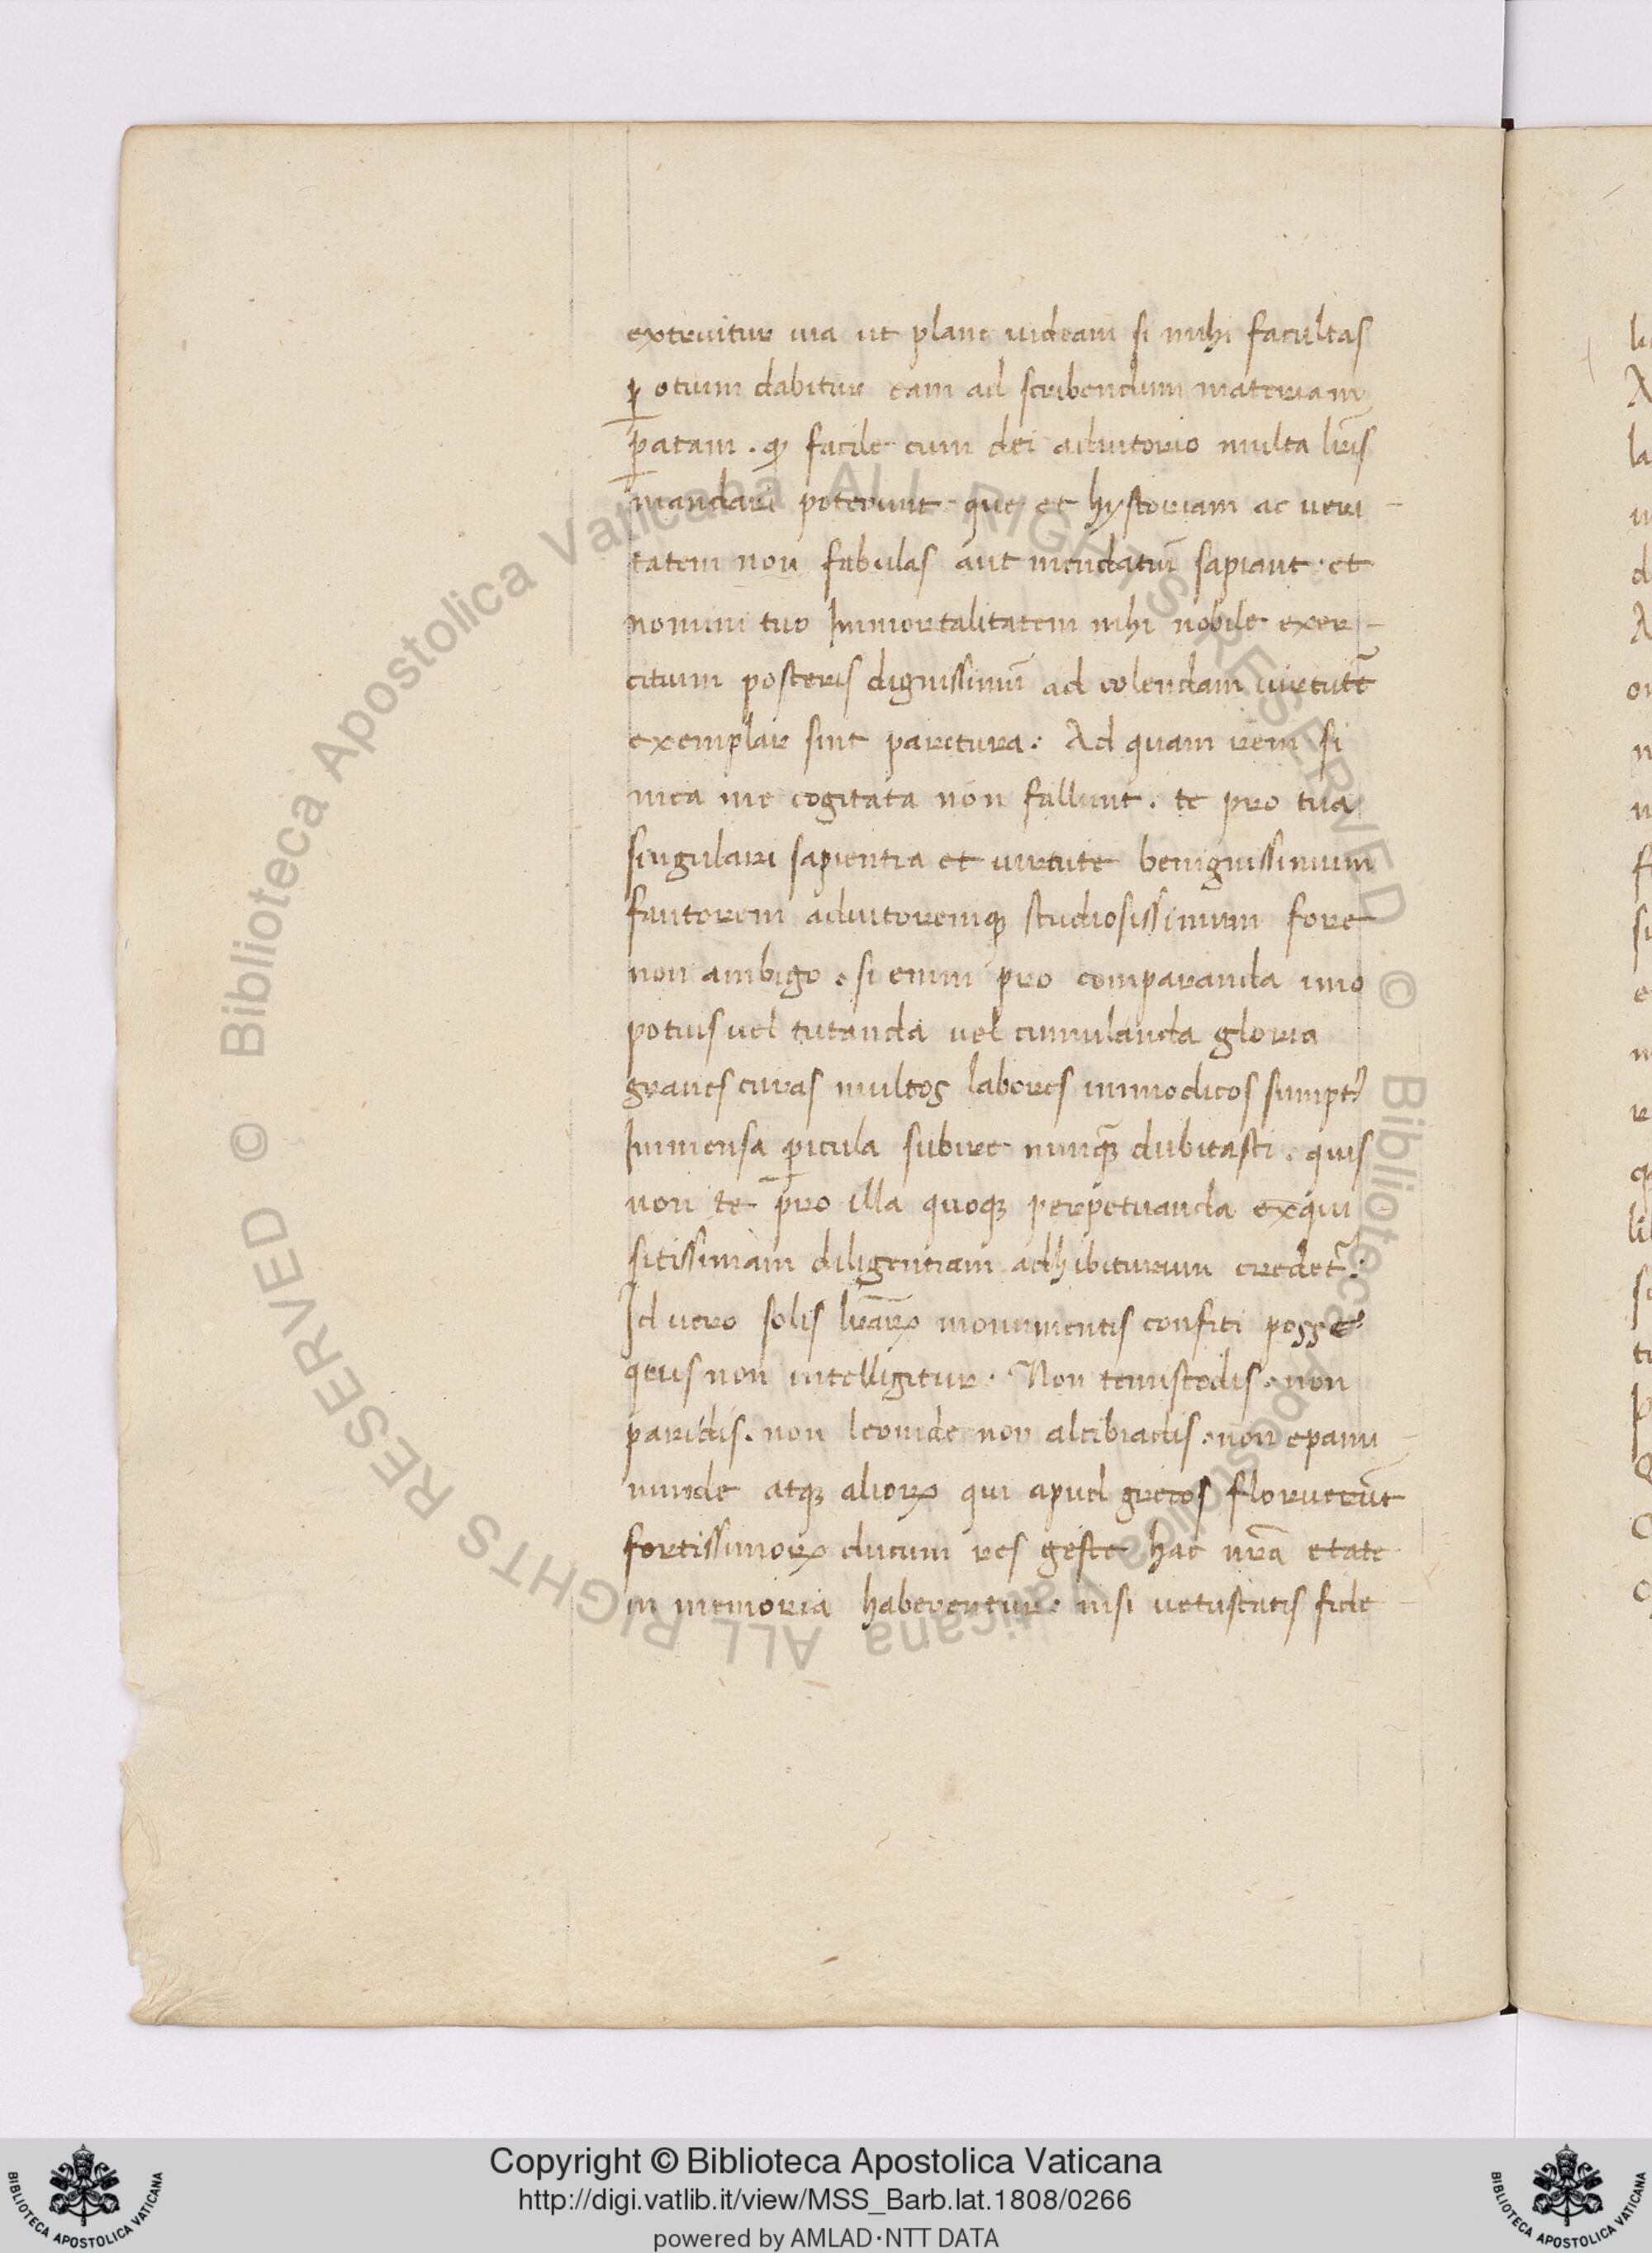 extruitur uia ut plane uideam si mihi facultas
ꝑ otium dabitur eam ad scribendum materiam
ꝑatam. qͥ facile cum dei adiutorio multa lr̄is
mandari poterunt que et hystoriam ac ueri-
tatem non fabulas aut mendatiū sapiant. et
nomini tuo Immortalitatem mihi nobile exer-
citium posteris dignissimū ad colendam uirtutē
exemplar sint paritura: Ad quam rem si
mea me cogitata non fallunt. te pro tua
singulari sapientia et uirtute benignissimum
fautorem adiutoremqꝫ studiosissimum fore
non ambigo. si enim pro comparanda imo
potius uel tutanda uel cumulanda gloria
graues curas multos labores immodicos sumptꝰ
Immensa ꝑicula subire nunqꝫ̄ dubitasti. quis
non te pro illa quoqꝫ perpetuanda exqui-
sitissimam diligentiam adhibiturum credet̄?
Id uero solis lr̄arꝝ monumentis confiti posse
quis non intelligitur. Non temistodis. non
paridis. non leonide non alcibiadis. non epami-
nunde atqꝫ aliorꝝ qui apud grecos floruerūt
fortissimorꝝ ducum res geste hac nr̄a etate
in memoria haberentur. nisi uetustatis fide
Copyright © Biblioteca Apostolica Vaticana
http://digi.vatlib.it/view/MSS_Barb.lat.1808/0266
powered by AMLAD·NTT DATA
BIBLIOTECA APOSTOLICA VATICANA
BIBLIOTECA APOSTOLICA VATICANA
© Biblioteca Apostolica Vaticana ALL RIGHTS RESERVED © Biblioteca Apostolica Vaticana ALL RIGHTS RESERVED